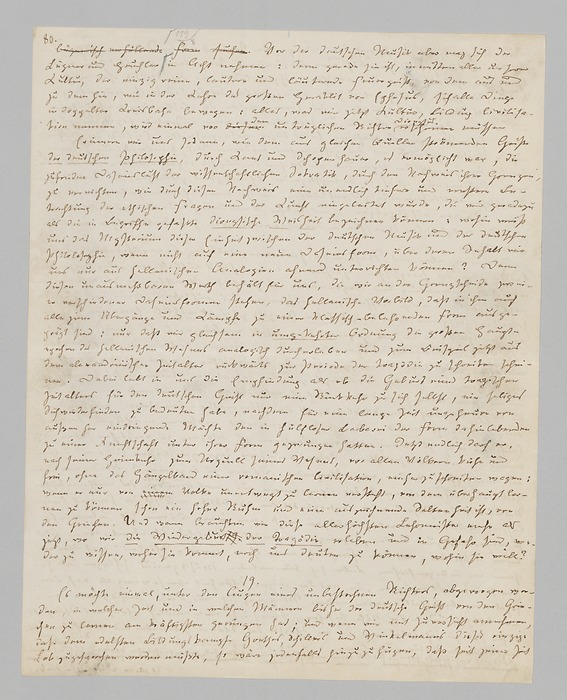 80.
lügnerisch verhüllende Form suchen. Vor der deutschen Musik aber mag sich der
Lügner und Heuchler in Acht nehmen: denn gerade sie ist, inmitten aller unserer
Cultur, der einzig reine, lautere und läuternde Feuergeist, von dem aus und
zu dem hin, wie in der Lehre des großen Heraklit von Ephesus, sich alle Dinge
in doppelter Kreisbahn bewegen: alles, was wir jetzt Cultur, Bildung, Civilisa-
tion nennen, wird einmal vor dem untrüglichen Richter Dionysus erscheinen müssen.
Erinnern wir uns sodann, wie dem aus gleichen Quellen strömenden Geiste
der deutschen Philosophie, durch Kant und Schopenhauer, es ermöglicht war, die
zufriedne Daseinslust der wissenschaftlichen Sokratik, durch den Nachweis ihrer Grenzen,
zu vernichten, wie durch diesen Nachweis eine unendlich tiefere und ernstere Be-
trachtung der ethischen Fragen und der Kunst eingeleitet wurde, die wir geradezu
als die in Begriffe gefaßte dionysische Weisheit bezeichnen können: wohin weist
uns das Mysterium dieser Einheit zwischen der deutschen Musik und der deutschen
Philosophie, wenn nicht auf eine neue Daseinsform, über deren Inhalt wir
uns nur aus hellenischen Analogien ahnend unterrichten können? Denn
diesen unausmeßbaren Werth behält für uns, die wir an der Grenzscheide zweie-
r verschiedener Daseinsformen stehen, das hellenische Vorbild, daß in ihm auch
alle jene Übergänge und Kämpfe zu einer klassisch-belehrenden Form ausge-
prägt sind: nur daß wir gleichsam in umgekehrter Ordnung die großen Haupte-
pochen des hellenischen Wesens analogisch durcherleben und zum Beispiel jetzt aus
dem alexandrinischen Zeitalter rückwärts zur Periode der Tragödie zu schreiten schei-
nen. Dabei lebt in uns die Empfindung als ob die Geburt eines tragischen
Zeitalters für den deutschen Geist nur eine Rückkehr zu sich selbst, ein seliges
Sichwiederfinden zu bedeuten habe, nachdem für eine lange Zeit ungeheure von
außen her eindringende Mächte den in hülfloser Barbarei der Form dahinlebenden
zu einer Knechtschaft unter ihrer Form gezwungen hatten. Jetzt endlich darf er,
nach seiner Heimkehr zum Urquell seines Wesens, vor allen Völkern kühn und
frei, ohne das Gängelband einer romanischen Civilisation, einherzuschreiten wagen:
wenn er nur von einem Volke unentwegt zu lernen versteht, von dem überhaupt ler-
nen zu können schon ein hoher Ruhm und eine auszeichnende Seltenheit ist, von
den Griechen. Und wann brauchten wir diese allerhöchsten Lehrmeister mehr als
jetzt, wo wir die Wiedergeburt der Tragödie erleben und in Gefahr sind, we-
der zu wissen, woher sie kommt, noch uns deuten zu können, wohin sie will?
19.
Es möchte einmal, unter den Augen eines unbestochenen Richters, abgewogen wer-
den, in welcher Zeit und in welchen Männern bisher der deutsche Geist von den Grie-
chen zu lernen am kräftigsten gerungen hat; und wenn wir mit Zuversicht annehmen,
daß dem edelsten Bildungskampfe Goethes, Schillers und Winckelmanns dieses einzige
Lob zugesprochen werden müßte, so wäre jedenfalls hinzuzufügen, daß seit jener Zeit